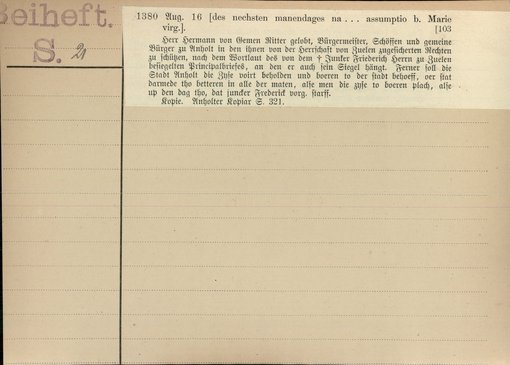 Beiheft.
S. 2
1380 Aug. 16 [des nechsten manendages na ... assumptio b. Marie
virg.]. [103
Herr Hermann von Gemen Ritter gelobt, Bürgermeister, Schöffen und gemeine
Bürger zu Anholt in den ihnen von der Herrschaft von Zuelen zugesicherten Rechten
zu schützen, nach dem Wortlaut des von dem † Junker Friederich Herrn zu Zuelen
besiegelten Principalbriefes, an den er auch sein Siegel hängt. Ferner soll die
Stadt Anholt die Zyse voirt beholden und boeren to der stadt behoeff, oer stat
darmede tho betteren in alle der maten, alse men die zyse to boeren plach, alse
up den dag tho, dat juncker Frederick vorg. starff.
Kopie. Anholter Kopiar S. 321.